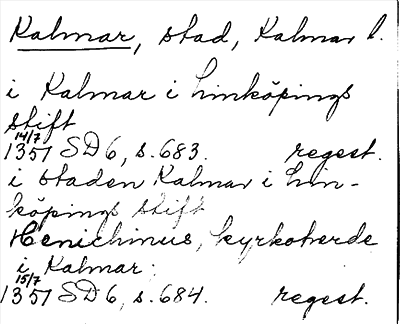 Kalmar, stad, Kalmar l.
i Kalmar i Linköpings
stift
14/7
1351 SD 6, s. 683. regest.
i staden Kalmar i Lin-
köpings stift
Henichinus, kyrkoherde
i Kalmar.
15/7
1351 SD 6, s. 684. regest.